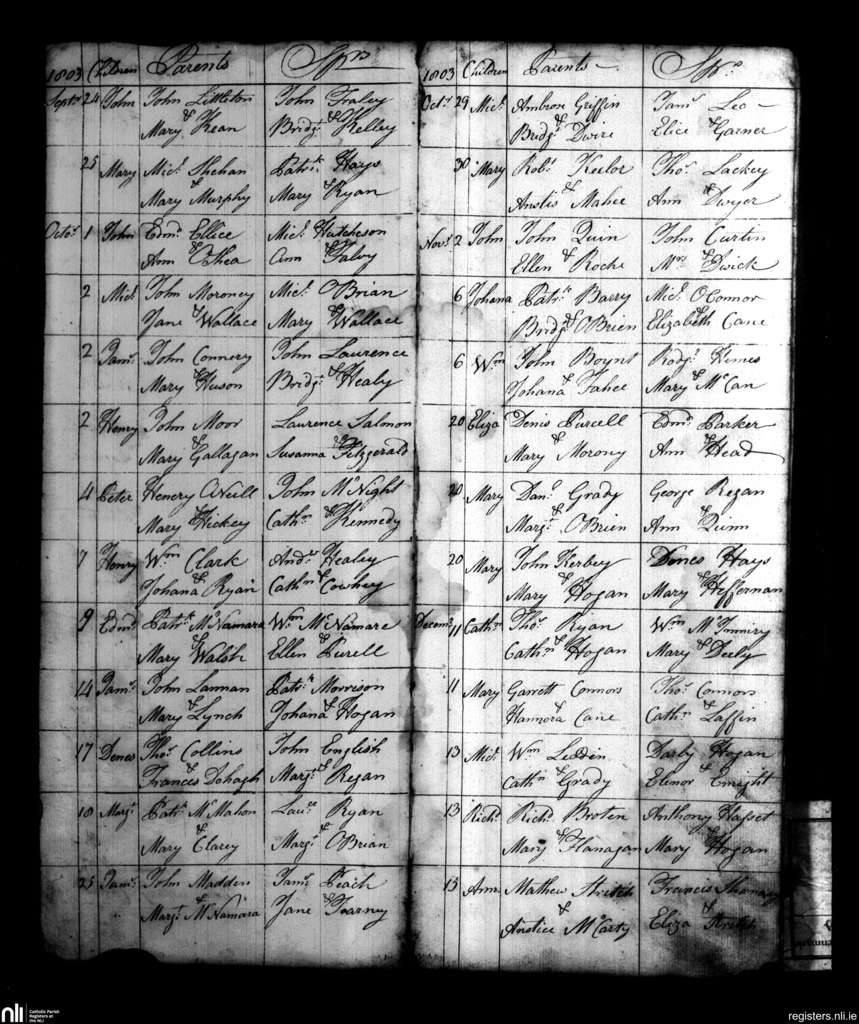 1803 Children Parents Sprs
Septr 24 John John Littleton John Fraley
& Mary Kean Bridgt & Kelley
25 Mary Michl Shehan Patrk Hays
Mary & Murphy Mary & Ryan
Octr 1 John Edmd Ellice Michl Hutcheson
Ann & OShea Ann & Falvy
2 Michl John Moroney Michl OBrian
Jane & Wallace Mary & Wallace
2 Jams John Connery John Laurence
Mary & Huson Bridgt & Healy
2 Henry John Moor Laurence Salmon
Mary & Gallagan Susanna & Fitzgerald
4 Peter Henery ONeill John McNight
Mary & Hickey Cathn & Kennedy
7 Henry Wm Clark Andw Healey
Johana & Ryan Cathn & Cowhey
9 Edmd Patrk McNamara Wm McNamare
Mary & Walsh Ellen & Purell
14 Jams John Lannan Patrk Morrison
Mary & Lynch Johana & Hogan
17 Denes Thos Collins John English
& Frances Dohagh Margt & Regan
18 Margt Patrk McMahon Laue Ryan
& Mary Clarey Margt & OBrian
25 Jams John Madden Jams Peach
& Margt McNamara Jane & Tearney
1803 Children Parents Sprs
Octr 29 Michl Ambros Griffin Jams Leo
Bridgt & Dwire Elice & Garner
30 Mary Robt Keelor Thos Lackey
Anstis & Mahee Ann & Dwyer
Novr 2 John John Quin John Curtin
Ellen & Roche Mrs & Dwick
6 Johana Patrk Barry Michl OConnor
Bridgt & OBrien Elizabeth & Cane
6 Wm John Boynt Rodgr Himes
Johana & Fahee Mary & McCan
20 Eliza Denis Purcell Edmd Parker
Mary & Morony Ann & Head
20 Mary Danl Grady George Regan
Margt & OBrien Ann & Quinn
20 Mary John Kerbey Denes Hays
Mary & Hogan Mary & Heffernan
Decemr 11 Cathn Thos Ryan Wm
Cathn & Hogan Mary & Deely
11 Mary Garrett Connors Thos Connors
Hannora & Cane Cathn & Laffin
13 Michl Wm Leddin Darby Hogan
Cathn & Grady Elenor & Enright
13 Richd Richd Broten Anthony
Mary & Flanagan Mary & Hogan
13 Ann Mathew Stritch Francis
& Anstice McCarty Eliza & Stritch
nli Catholic Parish
Registers at
the NLI
registers.nli.ie